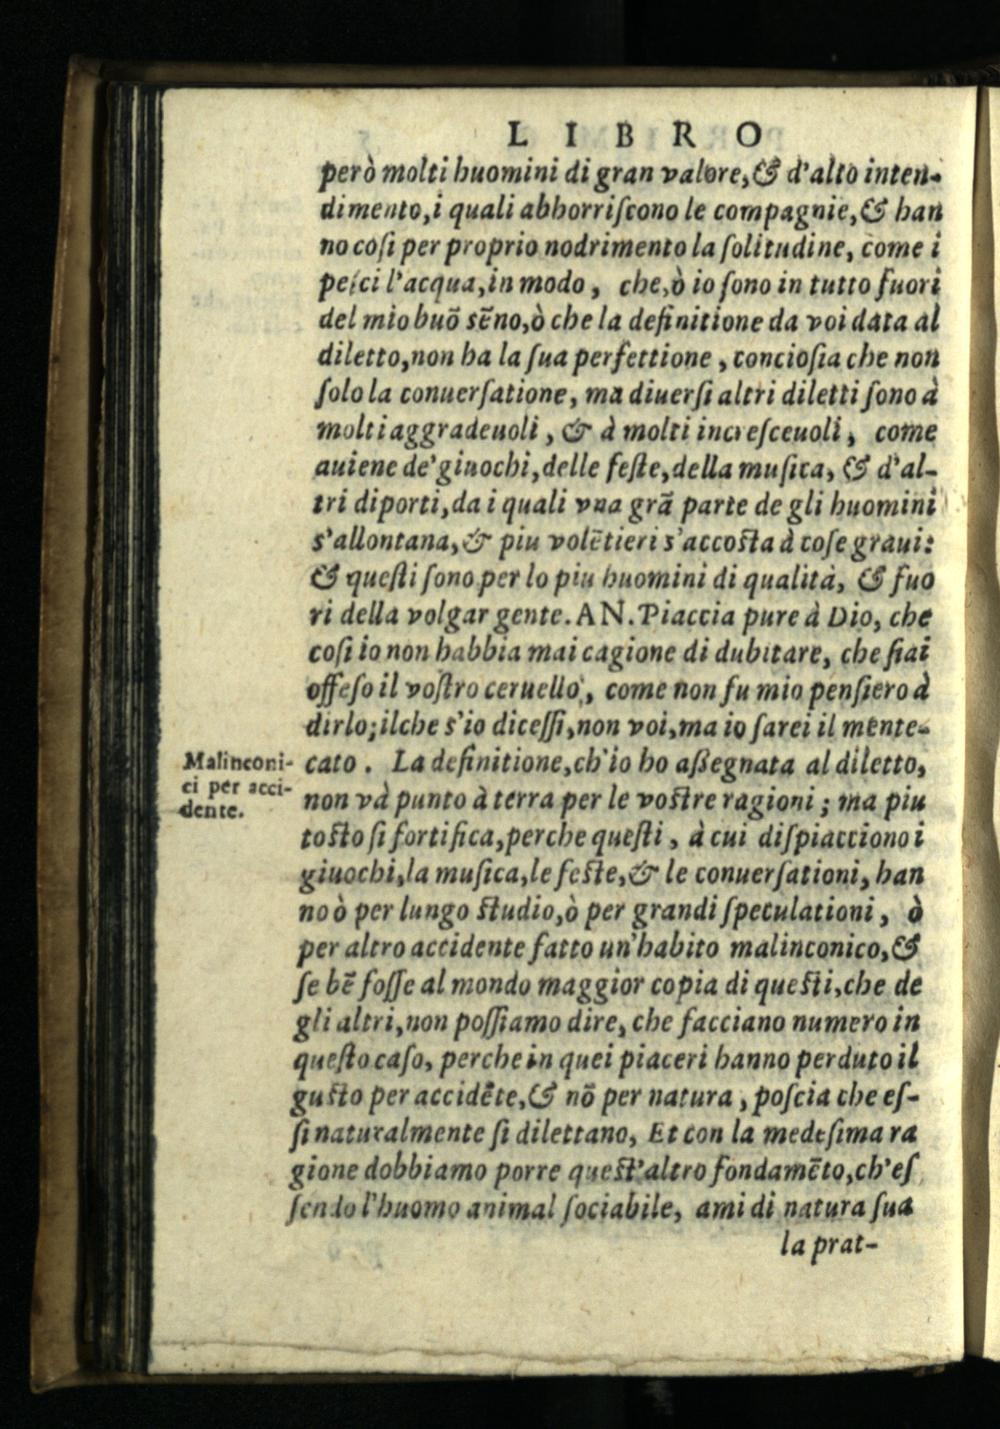 LIBRO
però molti huomini di gran valore, & d'alto inten-
dimento, i quali abhorriſcono le compagnie, & han
no coſi per proprio nodrimento la ſolitudine, come i
peſci l'acqua, in modo, che, ò io ſono in tutto fuori
del mio buō sēno, ò che la definitione da voi data al
diletto, non ha la ſua perfettione, concioſia che non
ſolo la conuerſatione, ma diuerſi altri diletti ſono à
molti aggradeuoli, & à molti increſceuoli, come
auiene de'giuochi, delle feſte, della muſica, & d'al-
tri diporti, da i quali vna grā parte de gli huomini
s'allontana, & piu volētieri s'accoſta à coſe graui:
& queſti ſono per lo piu huomini di qualità, & fuo
ri della volgar gente. AN. Piaccia pure à Dio, che
coſi io non habbia mai cagione di dubitare, che ſiai
offeſo il voſtro ceruello, come non fu mio penſiero à
dirlo; ilche s'io diceſſi, non voi, ma io ſarei il mente-
cato. La definitione, ch'io ho aßegnata al diletto,
Malinconi-
ci per acci-
dente.
non và punto à terra per le voſtre ragioni; ma piu
toſto ſi fortifica, perche queſti, à cui diſpiacciono i
giuochi, la muſica, le feſte, & le conuerſationi, han
no ò per lungo ſtudio, ò per grandi ſpeculationi, ò
per altro accidente fatto un'habito malinconico, &
ſe bē foſſe al mondo maggior copia di queſti, che de
gli altri, non poſſiamo dire, che facciano numero in
queſto caſo, perche in quei piaceri hanno perduto il
guſto per accidēte, & nō per natura, poſcia che eſ-
ſi naturalmente ſi dilettano, Et con la medeſima ra
gione dobbiamo porre queſt'altro fondamēto, ch'eſ
ſendo l'huomo animal ſociabile, ami di natura ſua
la prat-